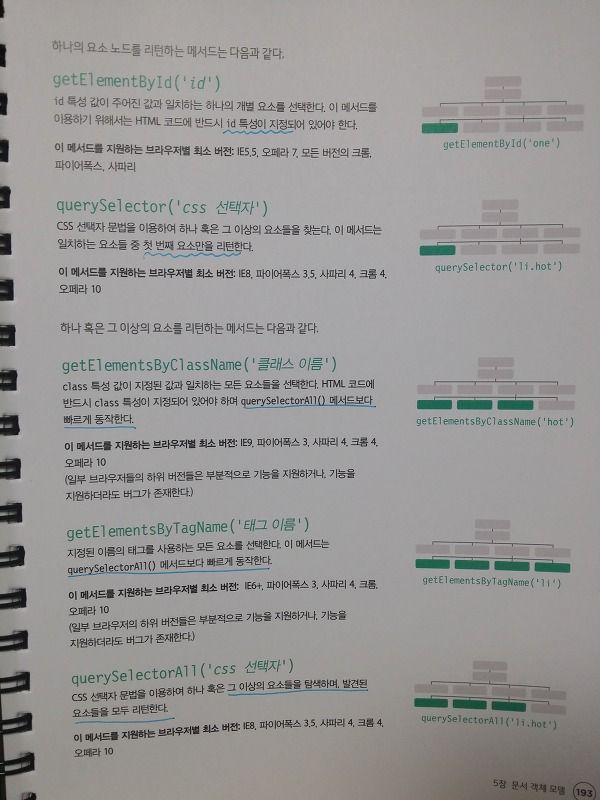 하나의 요소 노드를 리턴하는 메서드는 다음과 같다.
getElementById('id')
id 특성 값이 주어진 값과 일치하는 하나의 개별 요소를 선택한다. 이 메서드를
이용하기 위해서는 HTML 코드에 반드시 id 특성이 지정되어 있어야 한다.
이 메서드를 지원하는 브라우저별 최소 버전: IE5.5, 오페라 7, 모든 버전의 크롬,
파이어폭스, 사파리
getElementById('one')
querySelector('css 선택자')
CSS 선택자 문법을 이용하여 하나 혹은 그 이상의 요소들을 찾는다. 이 메서드는
일치하는 요소들 중 첫 번째 요소만을 리턴한다.
이 메서드를 지원하는 브라우저별 최소 버전: IE8, 파이어폭스 3.5, 사파리 4, 크롬 4,
오페라 10
querySelector('li.hot')
하나 혹은 그 이상의 요소를 리턴하는 메서드는 다음과 같다.
getElementsByClassName('클래스 이름')
class 특성 값이 지정된 값과 일치하는 모든 요소들을 선택한다. HTML 코드에
반드시 class 특성이 지정되어 있어야 하며 querySelectorAll() 메서드보다
빠르게 동작한다.
이 메서드를 지원하는 브라우저별 최소 버전: IE9, 파이어폭스 3, 사파리 4, 크롬 4,
오페라 10
(일부 브라우저들의 하위 버전들은 부분적으로 기능을 지원하거나, 기능을
지원하더라도 버그가 존재한다.)
getElementsByClassName('hot')
getElementsByTagName('태그 이름')
지정된 이름의 태그를 사용하는 모든 요소를 선택한다. 이 메서드는
querySelectorAll() 메서드보다 빠르게 동작한다.
이 메서드를 지원하는 브라우저별 최소 버전: IE6+, 파이어폭스 3, 사파리 4, 크롬,
오페라 10
(일부 브라우저의 하위 버전들은 부분적으로 기능을 지원하거나, 기능을
지원하더라도 버그가 존재한다.)
getElementsByTagName('li')
querySelectorAll('css 선택자')
CSS 선택자 문법을 이용하여 하나 혹은 그 이상의 요소들을 탐색하며, 발견된
요소들을 모두 리턴한다.
이 메서드를 지원하는 브라우저별 최소 버전: IE8, 파이어폭스 3.5, 사파리 4, 크롬 4,
오페라 10
querySelectorAll('li.hot')
5장 문서 객체 모델 193